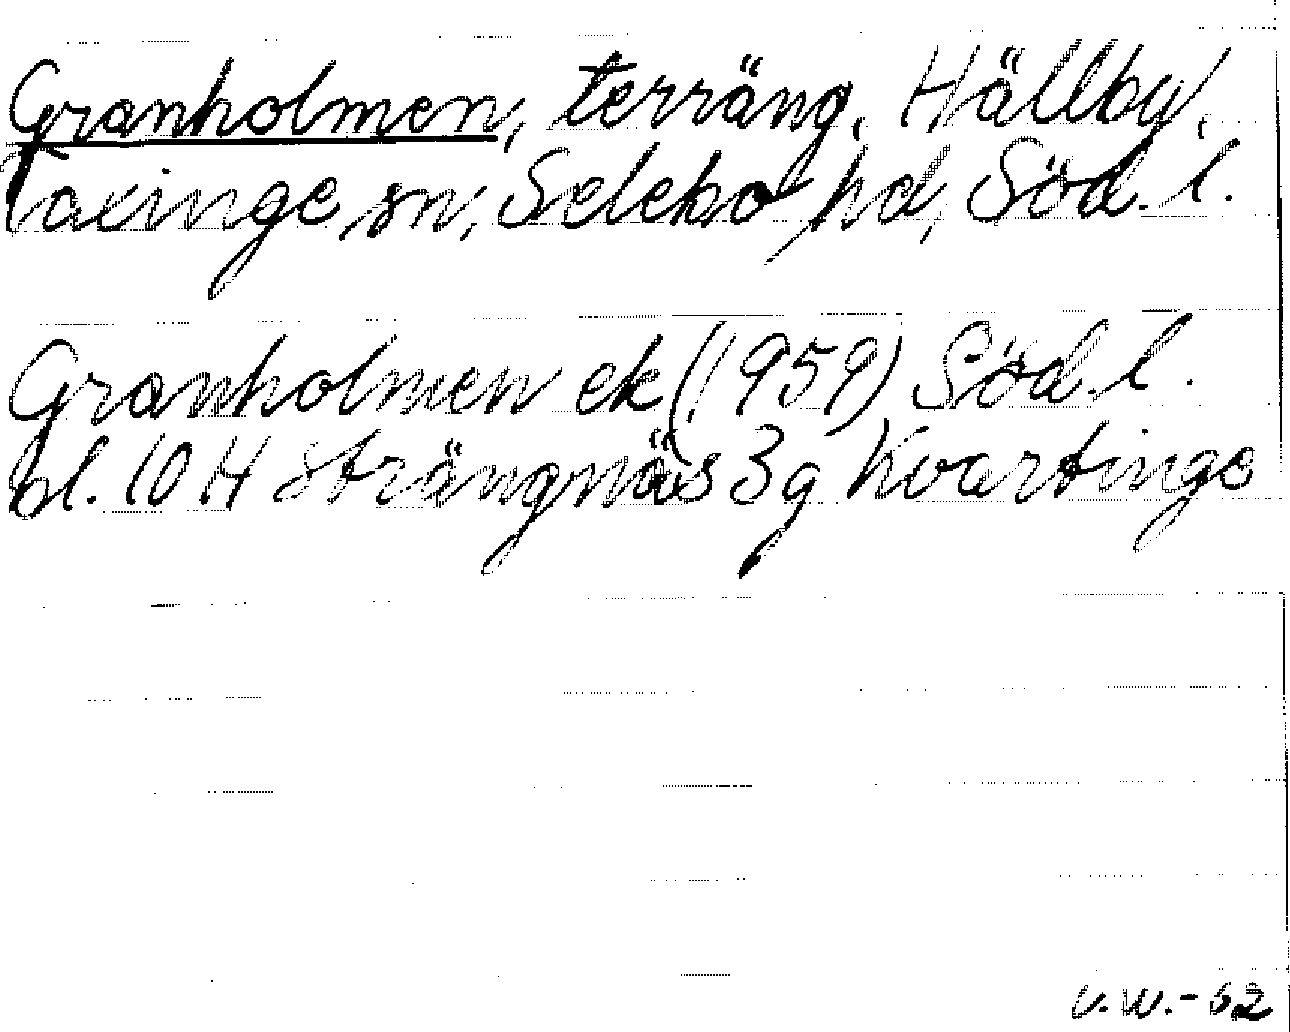 Granholmen, terräng, Hällby,
Taxinge sn, Selebo hd, Söd. l.
Granholmen ek (1959) Söd. l.
bl. 10 H Strängnäs 3g Kvartinge
V.W.-62